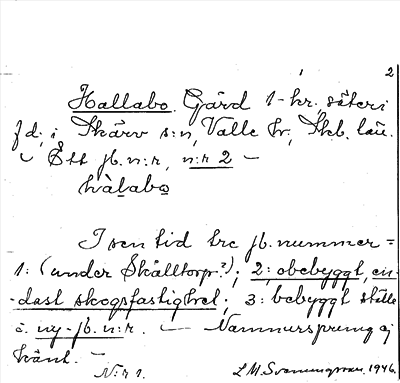 2
Hallabo. Gård 1-hr, säteri
f d, i Skärv s:n, Valle hr, Skb. län.
— Ett jb. n:r, n:r 2 —
hàlabo
I sen tid tre jb. nummer =
1: (under Skälltorp?); 2: obebyggt, en-
-dast skogsfastighet; 3: bebyggt ställe
å ny-jb. n:r. — Namnursprung ej
känt. —
N:r 1. L M. Svenungsson, 1946.